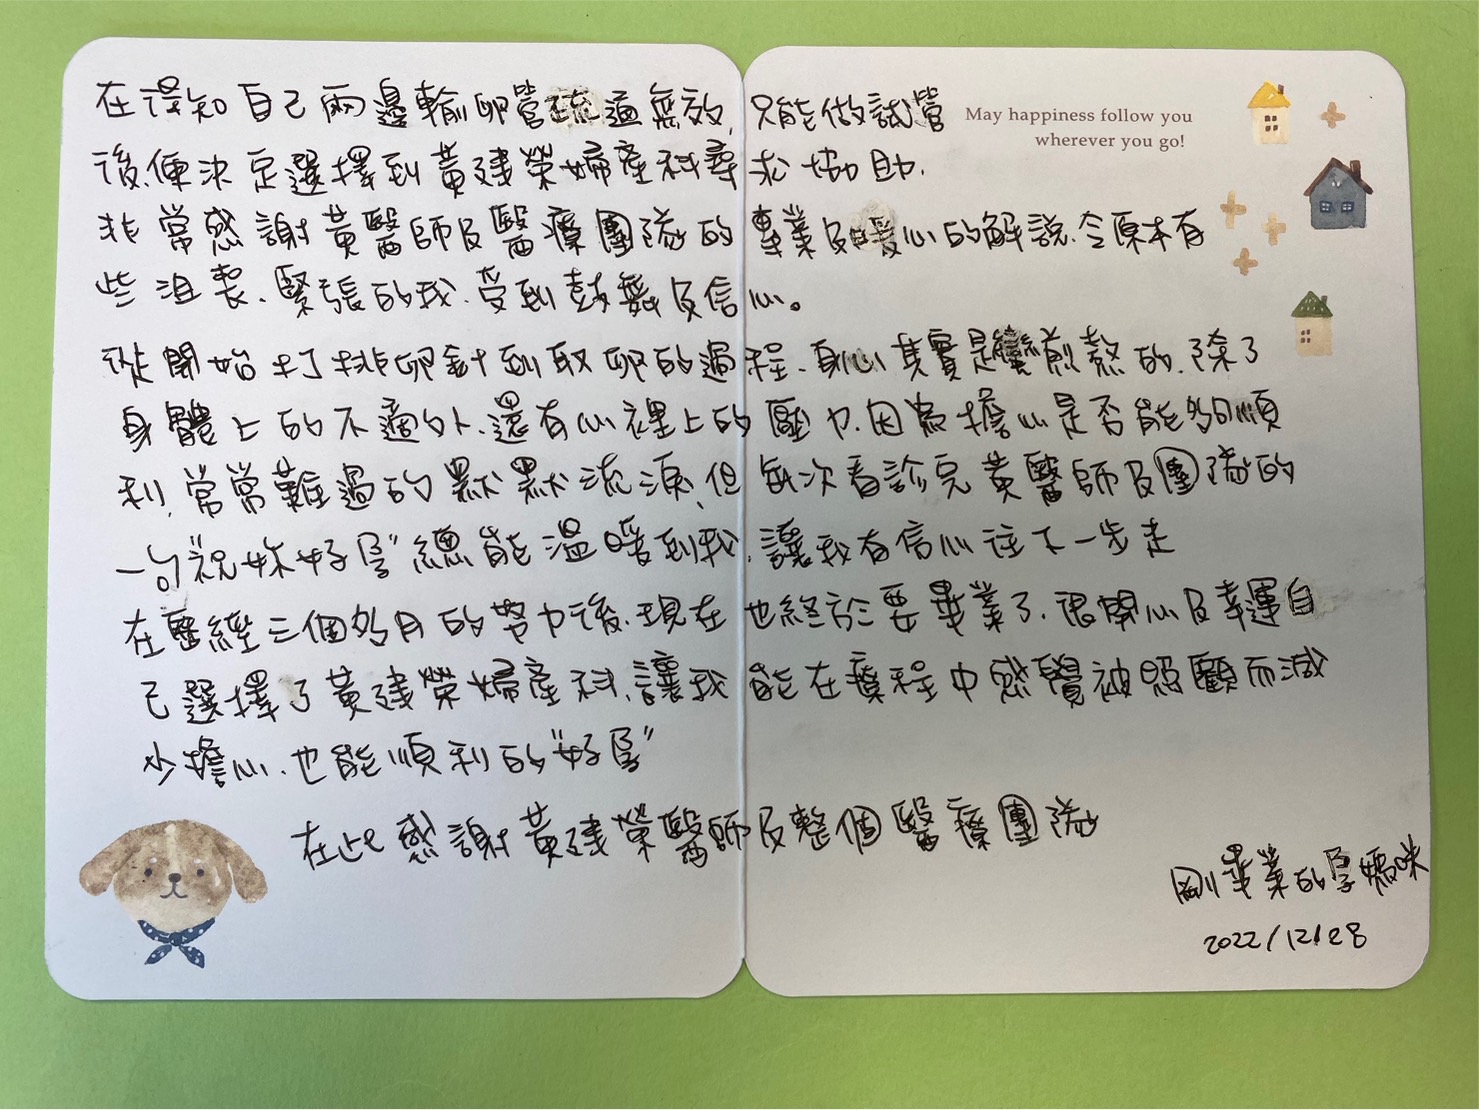 在得知自己兩邊輸卵管疏通無效,只能做試管
May happiness follow you
wherever you go!
後,便決定選擇到黃建榮婦產科尋求協助.
非常感謝黃醫師及醫療團隊的專業及暖心的解說.令原本有
些沮喪、緊張的我.受到鼓舞及信心。
從開始打排卵針到取卵的過程.身心其實是蠻煎熬的.除了
身體上的不適外.還有心裡上的壓力.因為擔心是否能夠順
利,常常難過的默默流淚,但每次看診完黃醫師及團隊的
一句"祝妳好孕"總能溫暖到我.讓我有信心往下一步走
在歷經三個多月的努力後.現在也終於要畢業了.很開心及幸運自
己選擇了黃建榮婦產科.讓我能在療程中感覺被照顧而減
少擔心.也能順利的"好孕"
在此感謝黃建榮醫師及整個醫療團隊
剛畢業的孕媽咪
2022/12/28